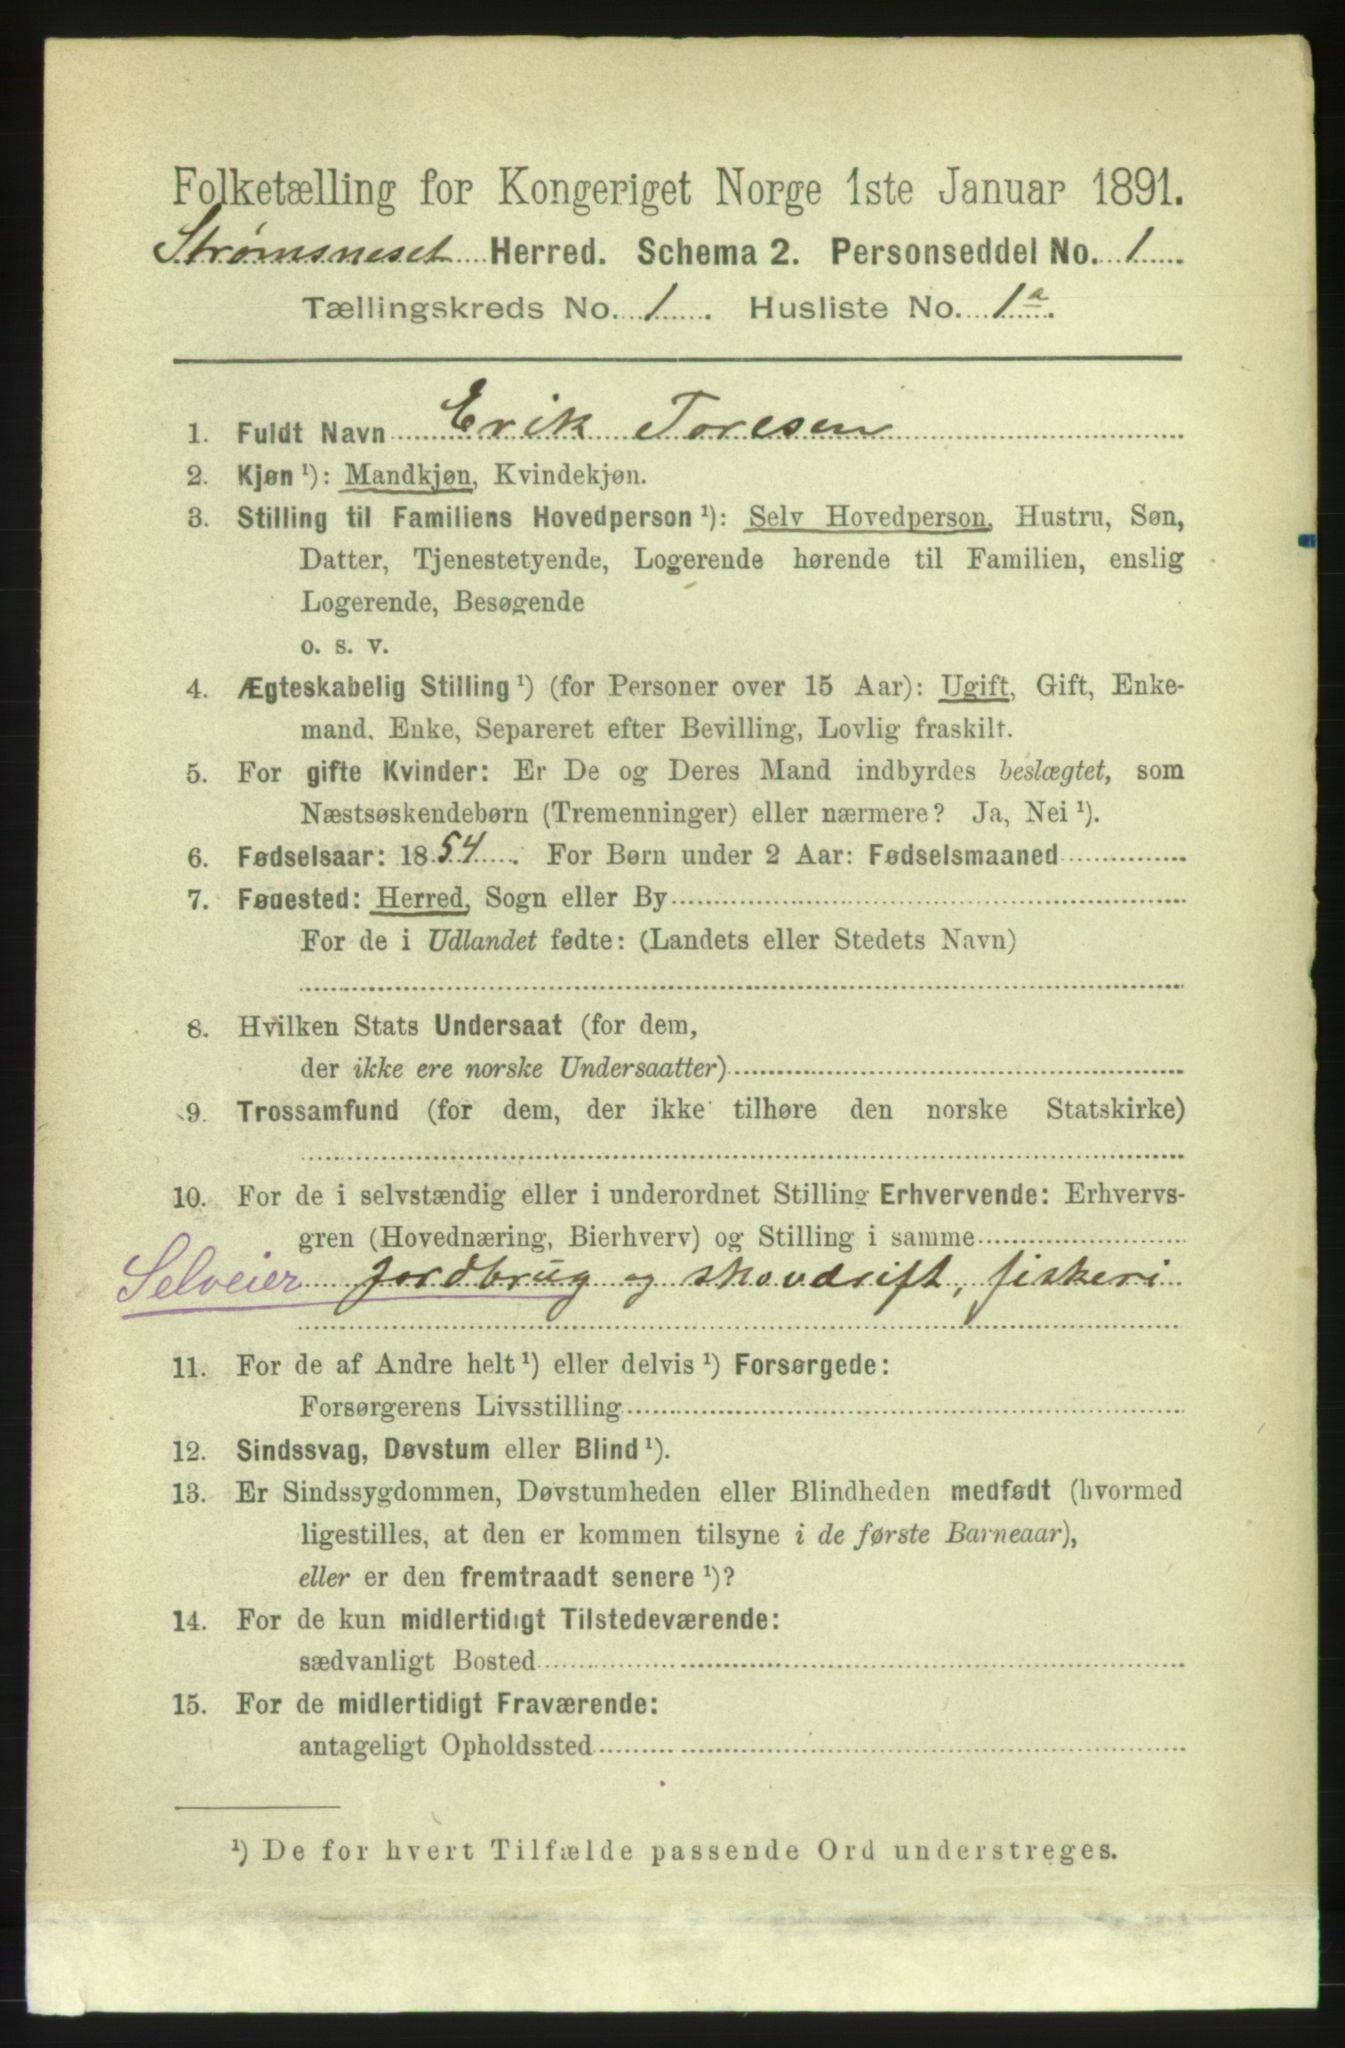 Folketælling for Kongeriget Norge 1ste Januar 1891.
Strømsneset Herred. Schema 2. Personseddel No. 1
Tællingskreds No. 1. Husliste No. 1a.
1. Fuldt Navn Erik Toresen
2. Kjøn ¹): Mandkjøn, Kvindekjøn.
3. Stilling til Familiens Hovedperson ¹): Selv Hovedperson, Hustru, Søn,
Datter, Tjenestetyende, Logerende hørende til Familien, enslig
Logerende, Besøgende
o. s. v.
4. Ægteskabelig Stilling ¹) (for Personer over 15 Aar): Ugift, Gift, Enke-
mand, Enke, Separeret efter Bevilling, Lovlig fraskilt.
5. For gifte Kvinder: Er De og Deres Mand indbyrdes beslægtet, som
Næstsøskendebørn (Tremenninger) eller nærmere? Ja, Nei ¹).
6. Fødselsaar: 1854. For Børn under 2 Aar: Fødselsmaaned
7. Fødested: Herred, Sogn eller By
For de i Udlandet fødte: (Landets eller Stedets Navn)
8. Hvilken Stats Undersaat (for dem,
der ikke ere norske Undersaatter)
9. Trossamfund (for dem, der ikke tilhøre den norske Statskirke)
10. For de i selvstændig eller i underordnet Stilling Erhvervende: Erhvervs-
gren (Hovednæring, Bierhverv) og Stilling i samme
Selveier Jordbrug og skovdrift, fiskeri
11. For de af Andre helt ¹) eller delvis ¹) Forsørgede:
Forsørgerens Livsstilling
12. Sindssvag, Døvstum eller Blind ¹).
13. Er Sindssygdommen, Døvstumheden eller Blindheden medfødt (hvormed
ligestilles, at den er kommen tilsyne i de første Barneaar),
eller er den fremtraadt senere ¹)?
14. For de kun midlertidigt Tilstedeværende:
sædvanligt Bosted
15. For de midlertidigt Fraværende:
antageligt Opholdssted
¹) De for hvert Tilfælde passende Ord understreges.